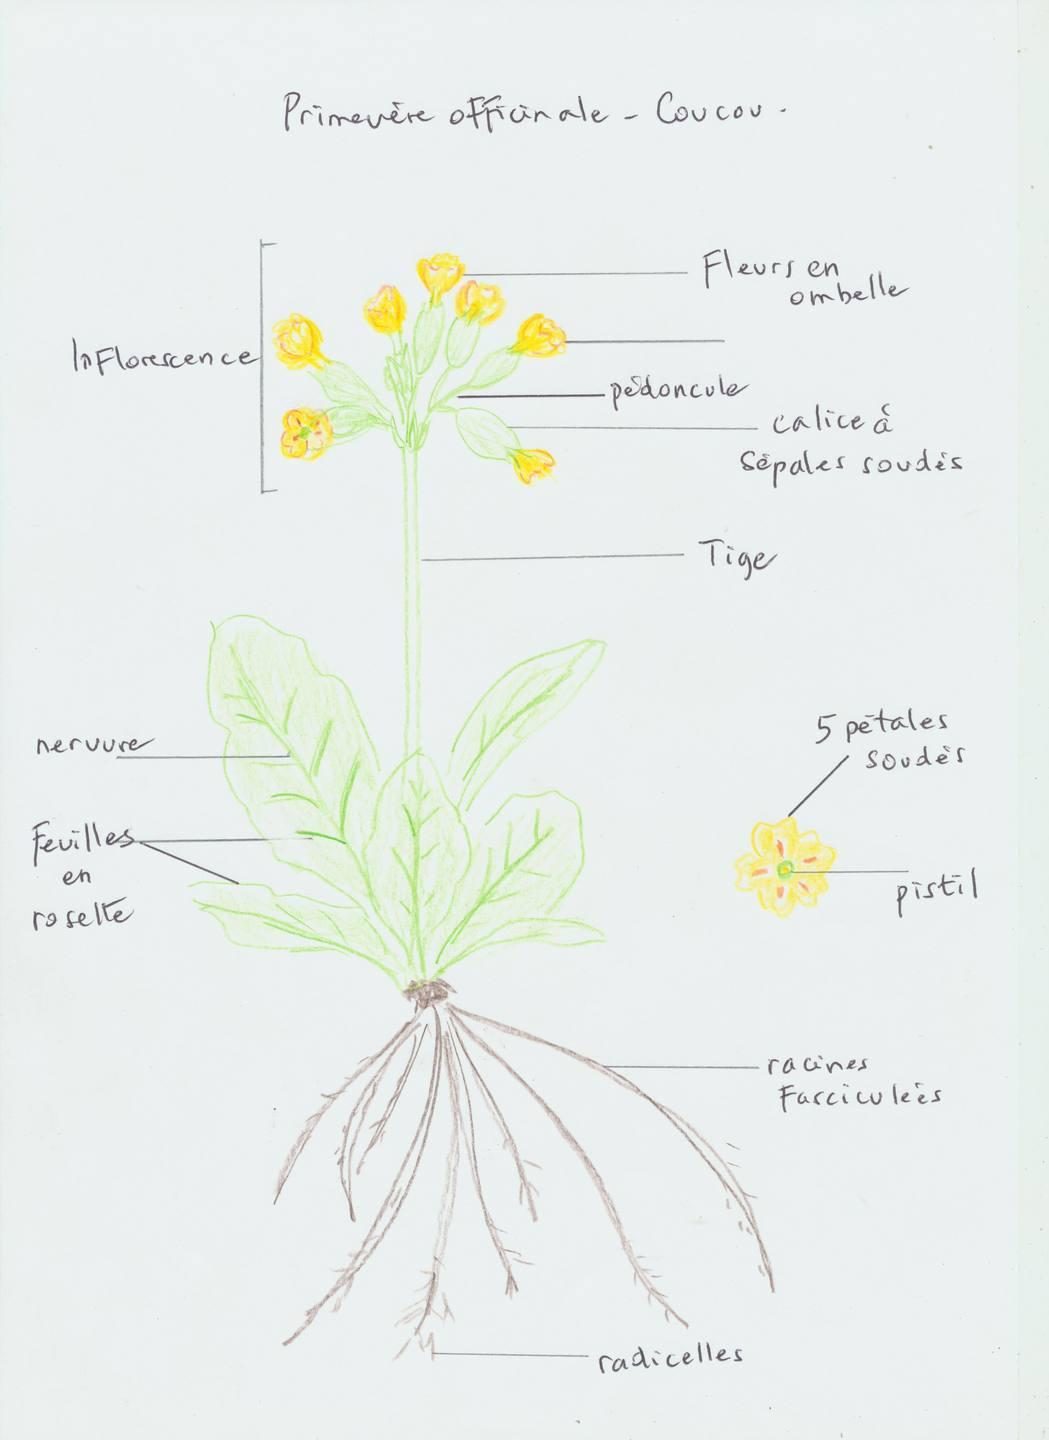 Primevère officinale - Coucou.
Fleurs en
ombelle
Inflorescence
pédoncule
calice à
sépales soudés
Tige
5 pétales
soudés
nervure
Feuilles
en
rosette
pistil
racines
Fasciculées
radicelles